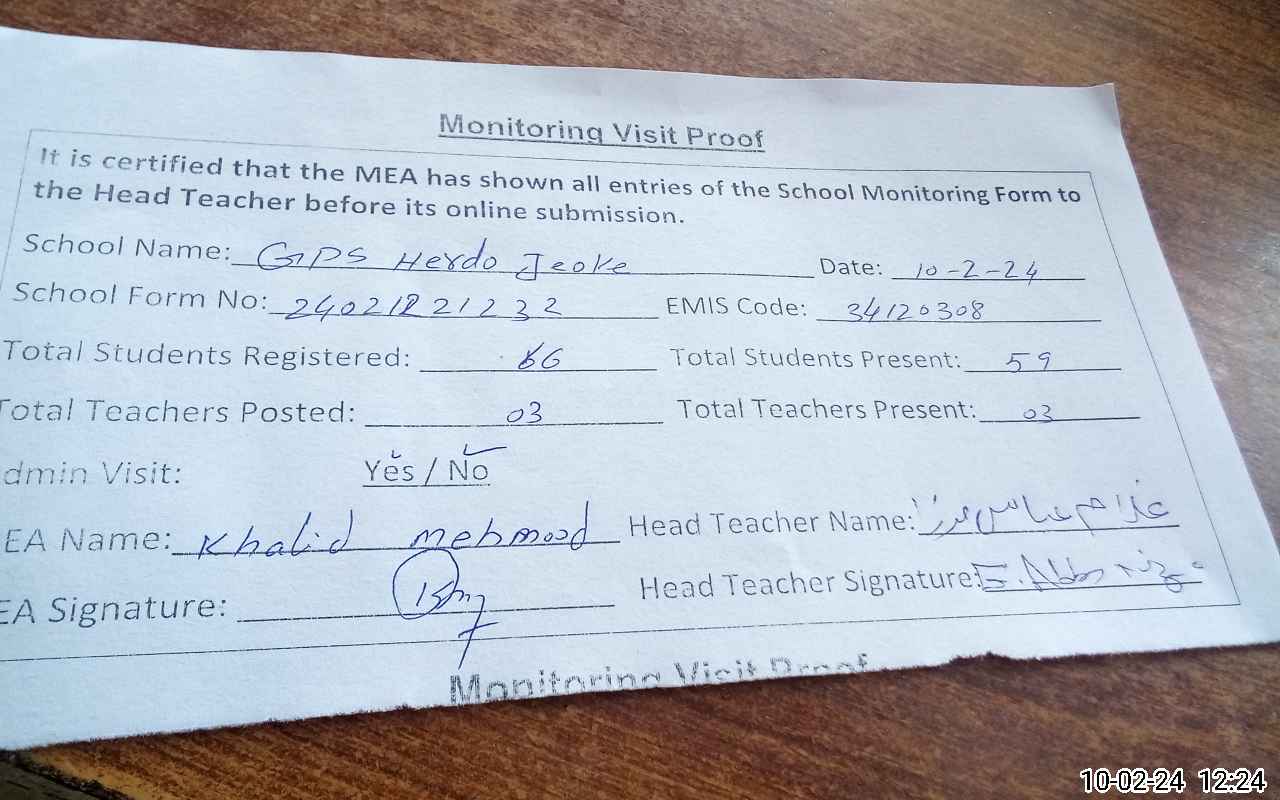 Monitoring Visit Proof
It is certified that the MEA has shown all entries of the School Monitoring Form to
the Head Teacher before its online submission.
School Name: GPS Herdo Jeoke Date: 10-2-24
School Form No: 24021221232 EMIS Code: 34120308
Total Students Registered: 66 Total Students Present: 59
Total Teachers Posted: 03 Total Teachers Present: 03
dmin Visit: Yes / No
EA Name: Khalid mehmood Head Teacher Name: غلام عباس
EA Signature: Head Teacher Signature: G. Abbas
Monitoring Visit Proof
10-02-24 12:24